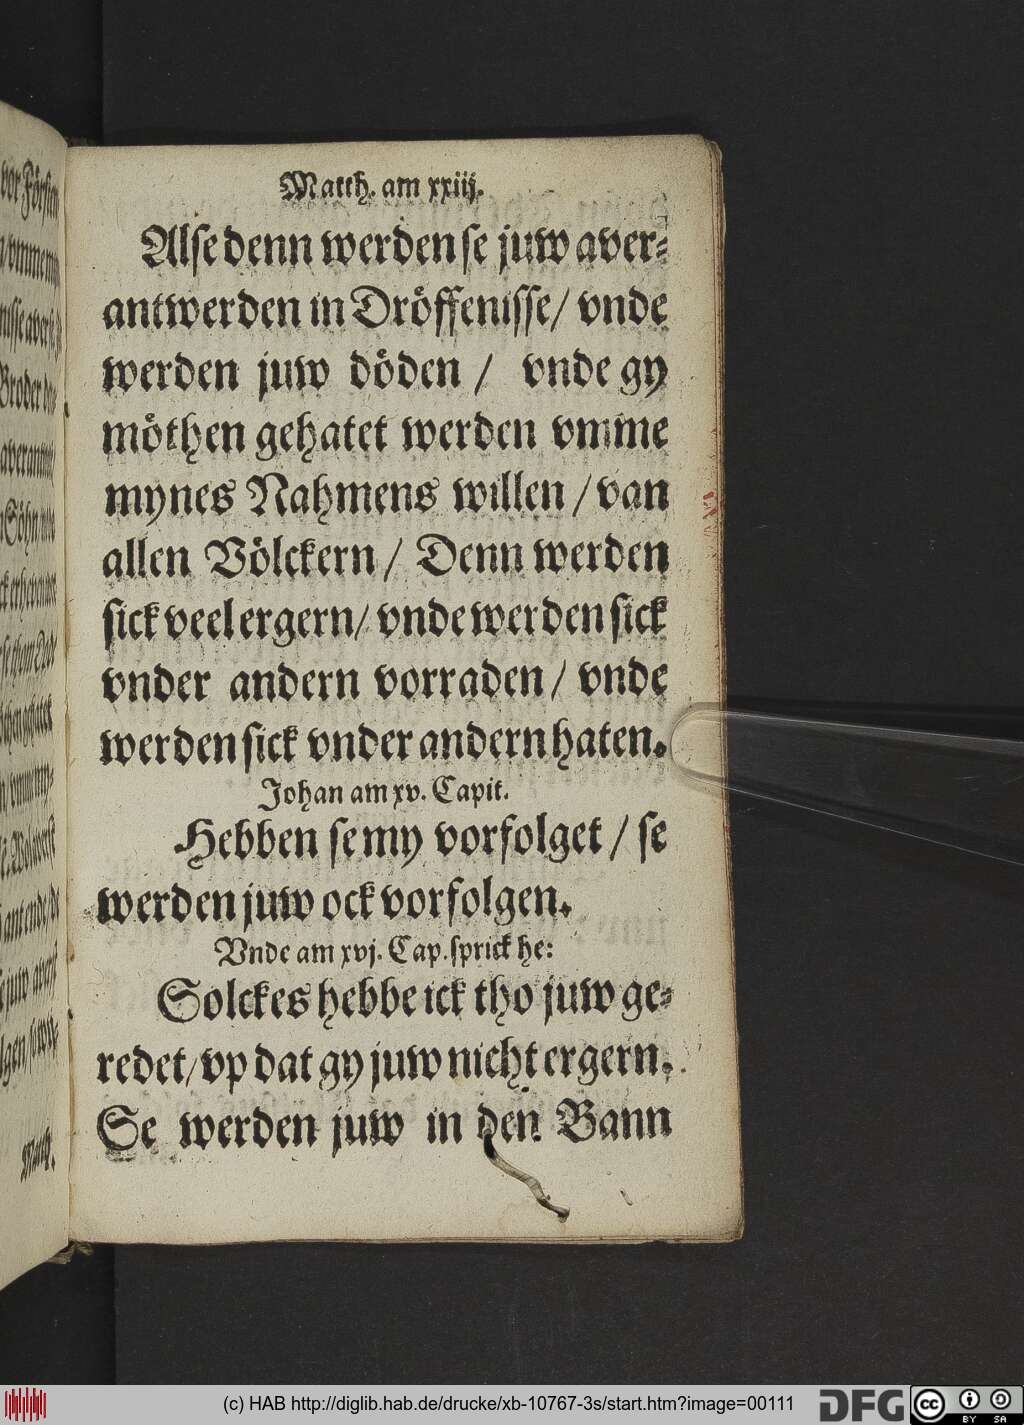 Matth. am xxiij.
Alse denn werden se juw aver-
antwerden in Dröffenisse/ vnde
werden juw döden / vnde gy
möthen gehatet werden vmme
mynes Nahmens willen / van
allen Völckern / Denn werden
sick veel ergern/ vnde werden sick
vnder andern vorraden / vnde
werden sick vnder andern haten.
Johan am xv. Capit.
Hebben se my vorfolget / se
werden juw ock vorfolgen.
Vnde am xvj. Cap. sprick he:
Solckes hebbe ick tho juw ge-
redet/ vp dat gy juw nicht ergern.
Se werden juw in den Bann
(c) HAB http://diglib.hab.de/drucke/xb-10767-3s/start.htm?image=00111
DFG
cc
BY SA